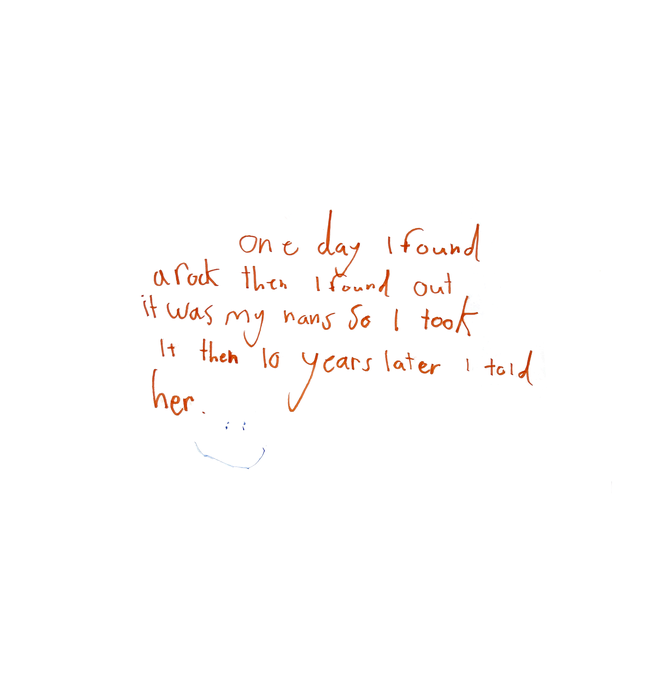 one day I found
a rock then I found out
it was my nans So I took
It then 10 years later I told
her.